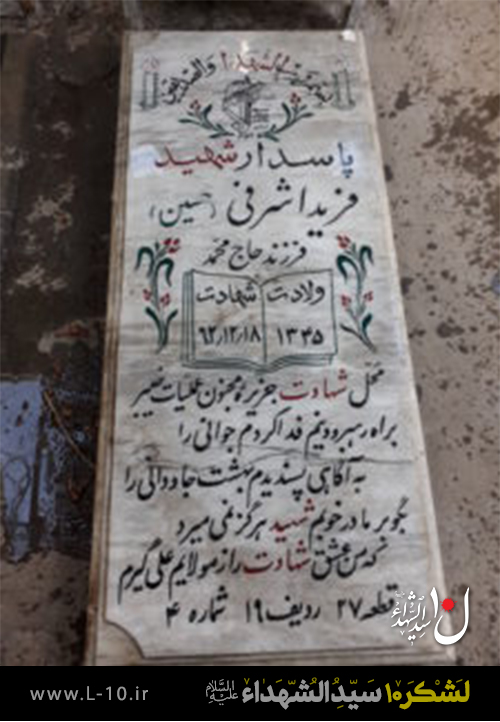 بسم رب الشهداء والصدیقین
پاسدار شهید
فرید اشرفی (حسین)
فرزند حاج محمد
ولادت شهادت
۱۳۳۵ ۶۲/۱۲/۱۸
محل شهادت جزیره مجنون عملیات خیبر
براه رهبر و دینم فدا کردم جوانی را
به آگاهی پسندیدم بهشت جاودانی را
بگو بر مادر خوبم شهید هرگز نمی میرد
که من عشق شهادت را ز مولایم علی گیرم
قطعه ۲۷ ردیف ۱۹ شماره ۴
سیدالشهداء
لشکر۱۰ سیدالشهداء علیه السلام
www.L-10.ir